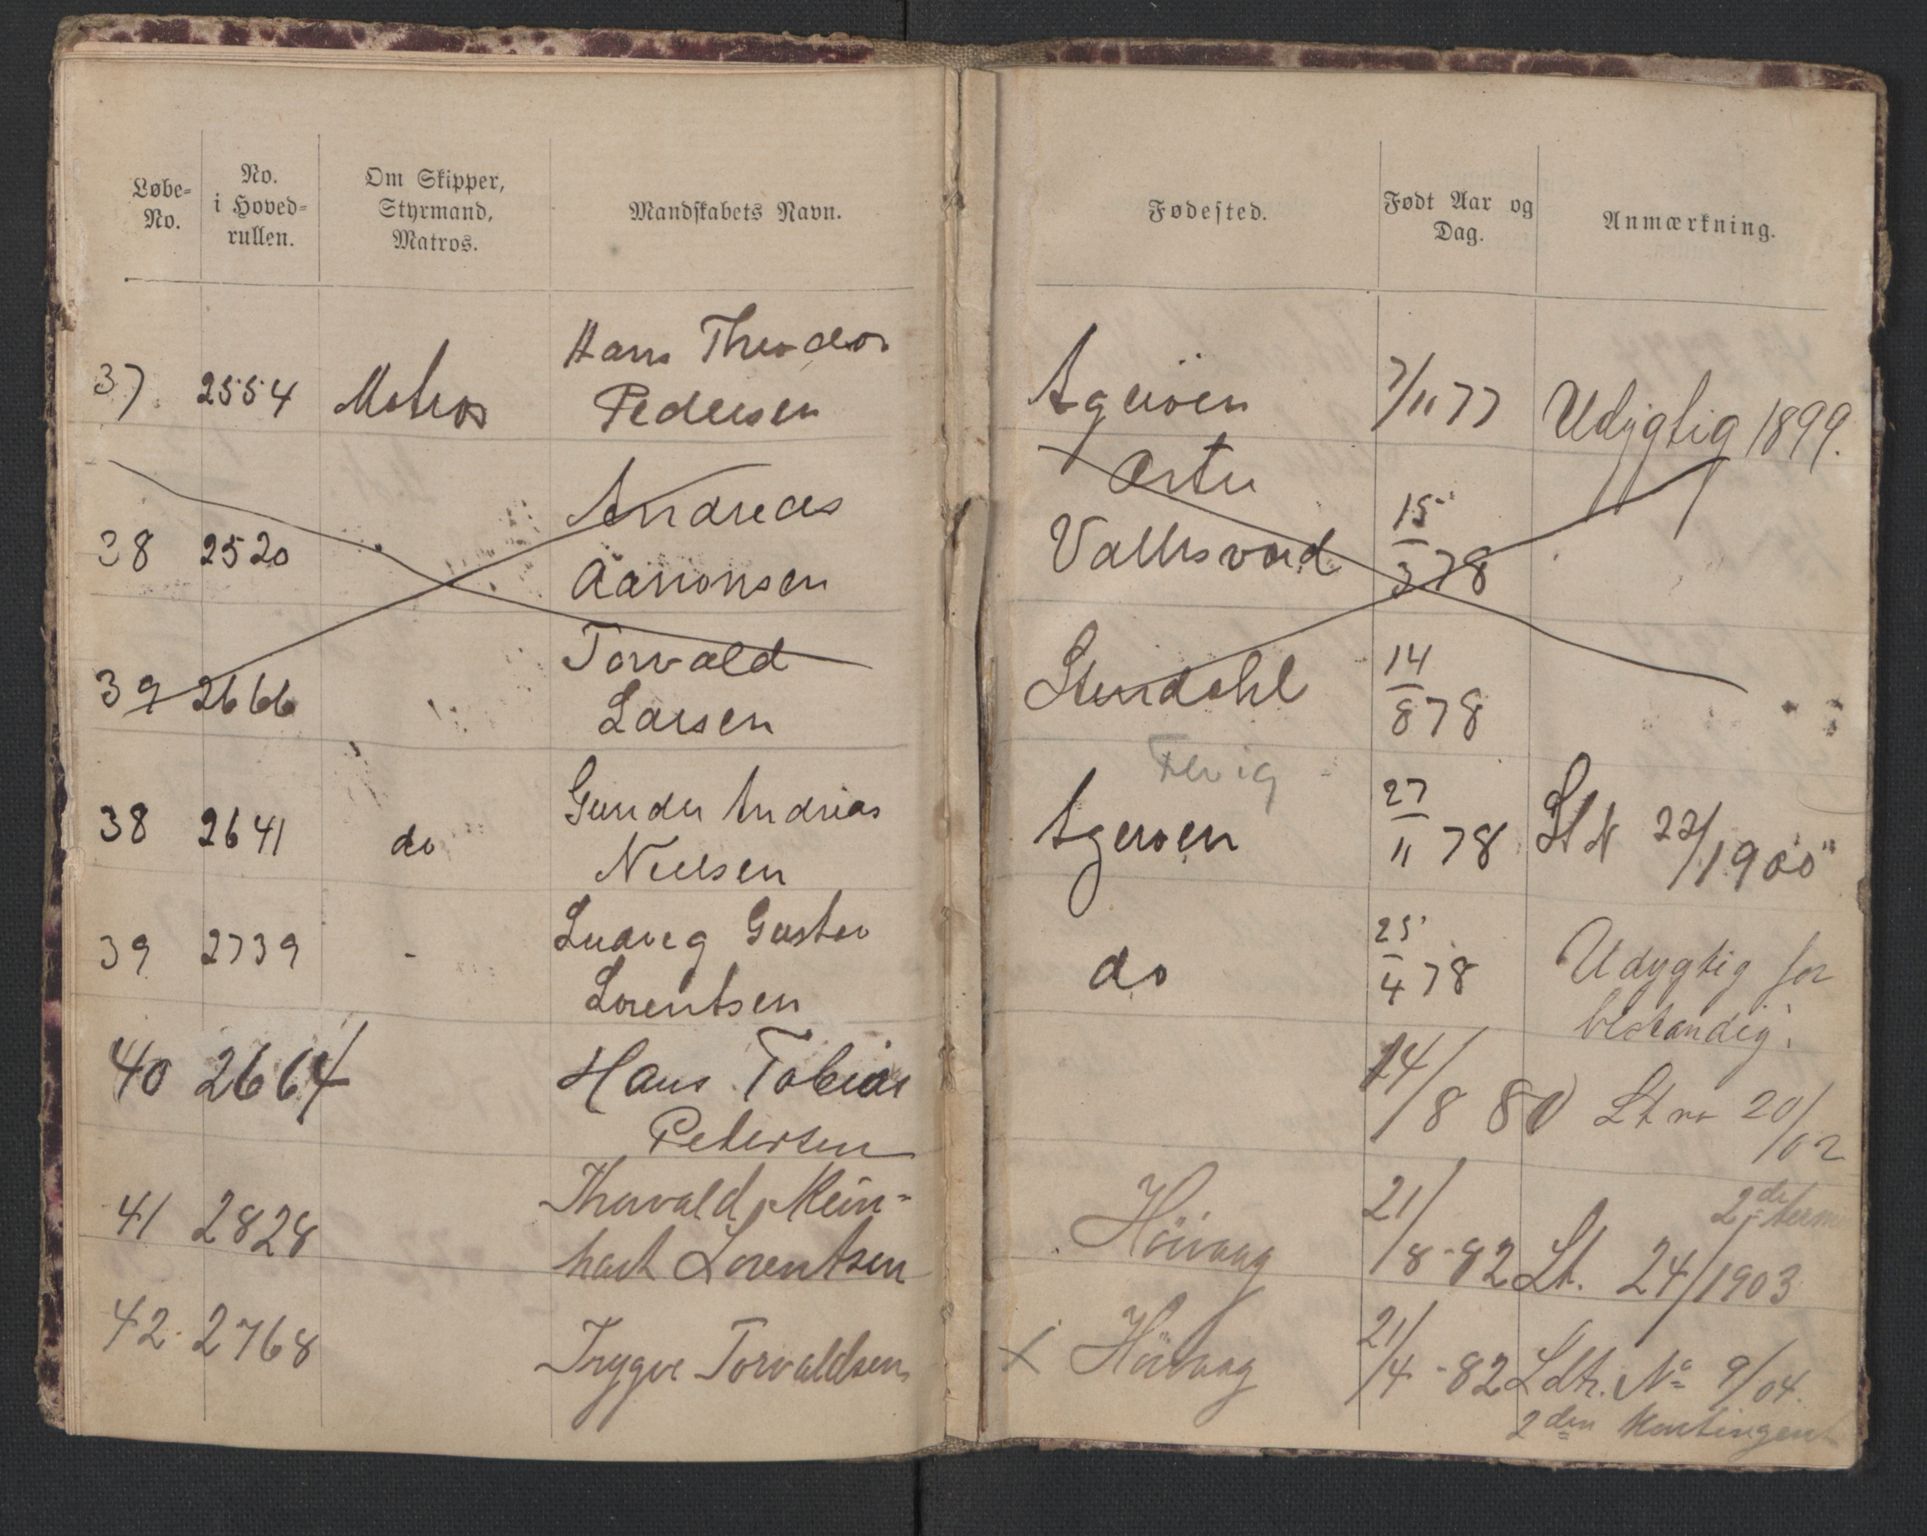 Løbe-No.
No. i Hoved-rullen.
Om Skipper, Styrmand, Matros.
Mandskabets Navn.
Fødested.
Født Aar og Dag.
Anmærkning.
37 2554 Matros Hans Theodor Pedersen Ageröen 7/11 77 Udygtig 1899.
38 2520 Andreas Aanonsen Østre Vallesverd 15/3 78
39 2666 Torvald Larsen Stendahl 14/8 78
38 2641 do Gunder Andreas Nielsen Ageröen 27/11 78 Lt N 22/1900
39 2739 - Ludvig Gustav Lorentsen do 25/4 78 Udygtig for bestandig.
40 2664 Hans Tobias Petersen 14/8 80 Lt no 20/02
41 2828 Thorvald Mein-hart Lorentsen Höivaag 21/8-82 Lt. 24/1903 2de term
42 2768 Trygve Torvaldsen x Hövaag 21/4-82 Ldtr. No 9/04.
2den Kontingent